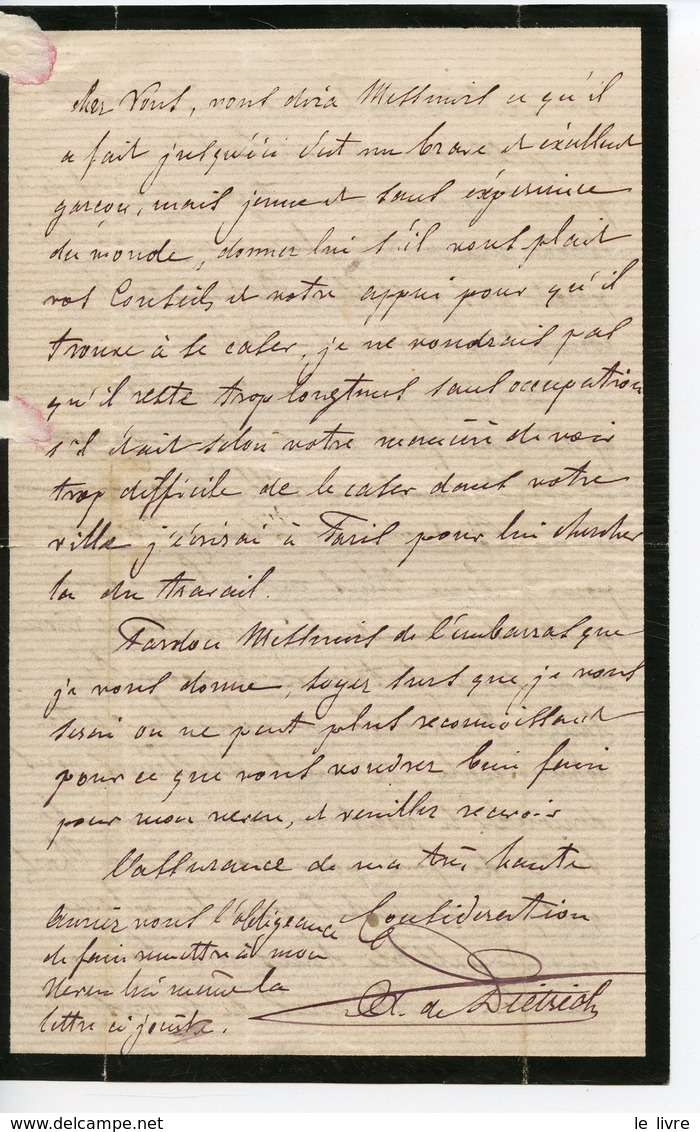 chez Vous, vous dira Messieurs ce qu'il
a fait jusqu'ici c'est un brave et éxcellent
garçon, mais jeune et sans éxperience
du monde, donner lui s'il vous plait
vos Conseils et votre appui pour qu'il
trouve à se caser, je ne voudrais pas
qu'il reste trop longtems sans occupation
s'il était selon votre manière de voir
trop difficile de le caser dans votre
ville j'écrirai à Paris pour lui chercher
la du travail.
Pardon Messieurs de l'embarras que
je vous donne, soyez surs que je vous
serai on ne peut plus reconnoissant
pour ce que vous voudrez bien faire
pour mon neveu, et veuillez recevoir
l'assurance de ma très haute
Consideration
A. de Dietrich
auriez vous l'obligeance
de faire remettre à mon
neveu lui même la
lettre ci jointe.
www.delcampe.net
le livre